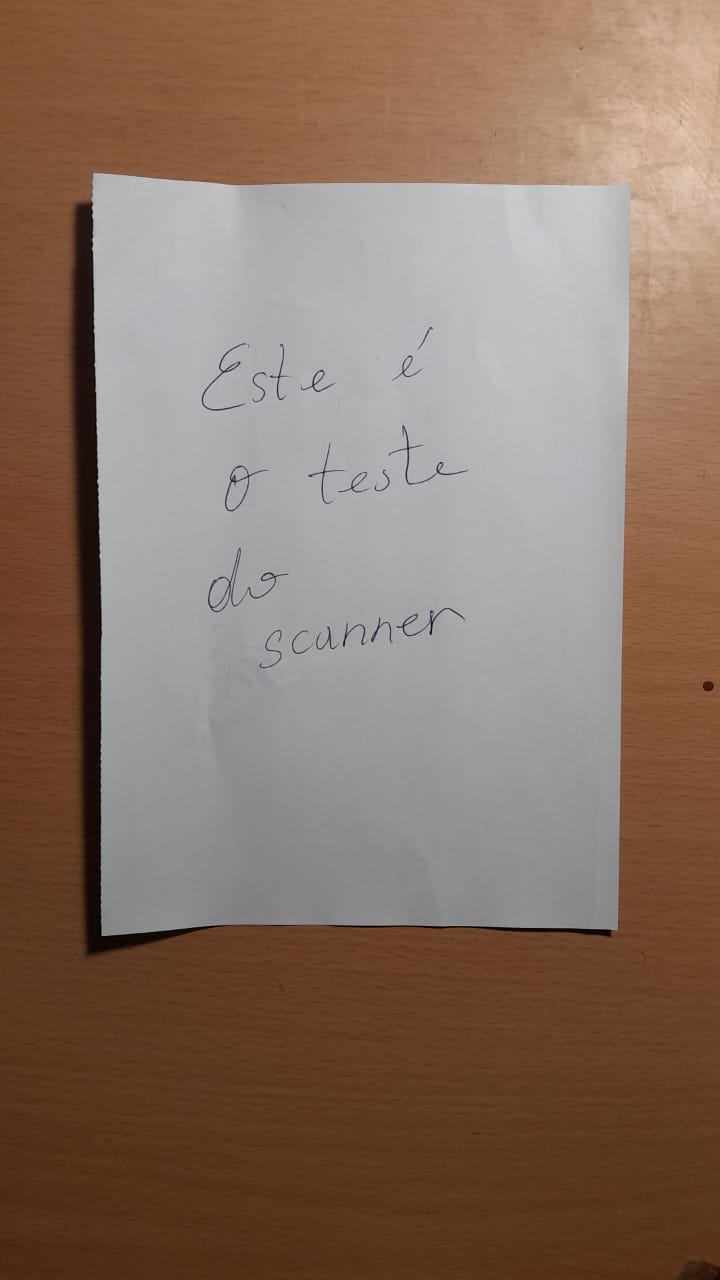 Este é
o teste
do
scanner